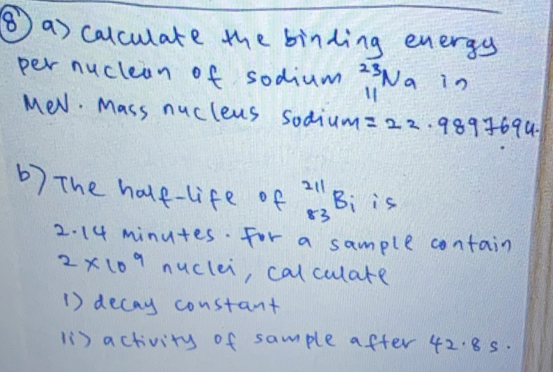 8) a) Calculate the binding energy
per nucleon of sodium ²³₁₁Na in
MeV. Mass nucleus sodium = 22.989769u.
b) The half-life of ²¹¹₈₃Bi is
2.14 minutes. For a sample contain
2 × 10⁹ nuclei, calculate
i) decay constant
ii) activity of sample after 42.8 s.